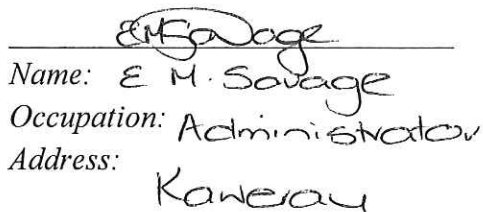 EMSavage
Name: E M. Savage
Occupation: Administrator
Address:
Kawerau